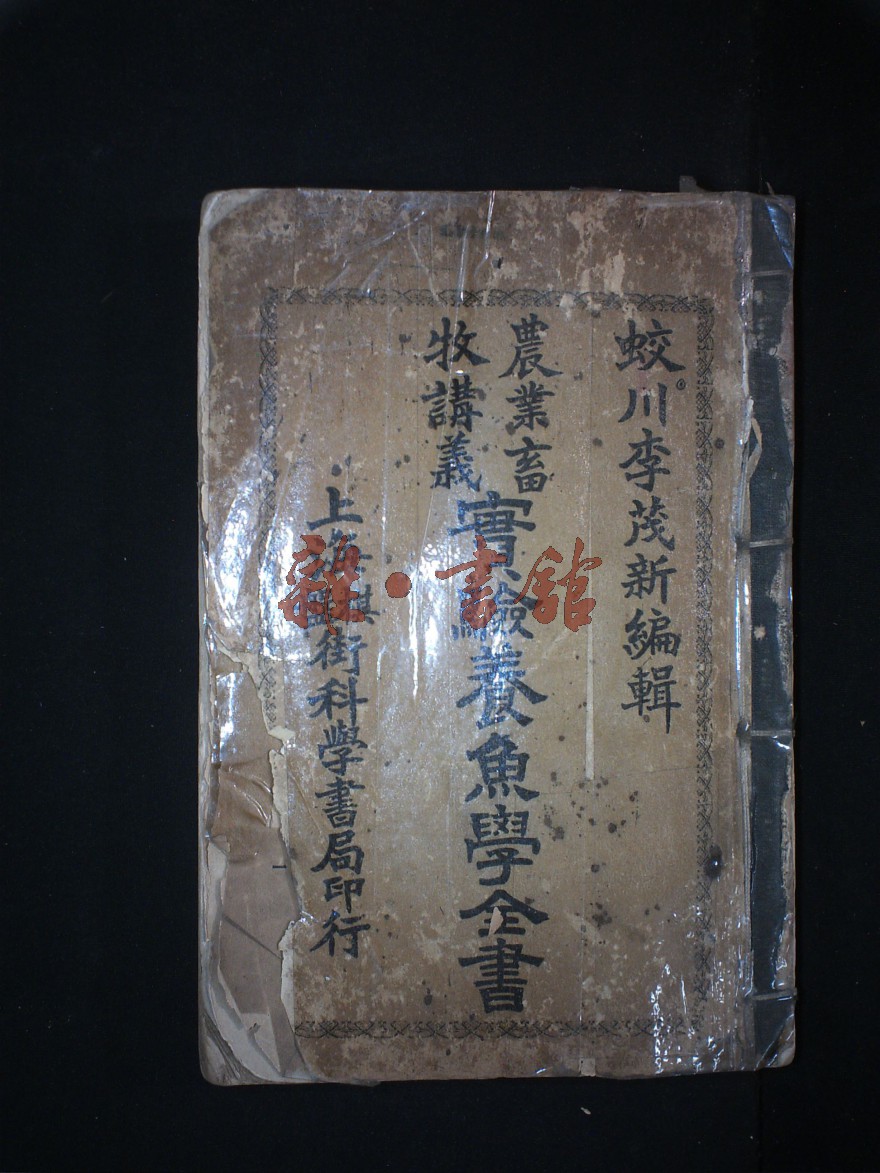 蛟川李茂新編輯
農業畜
牧講義
實驗養魚學全書
上海棋盤街科學書局印行
雜·書館